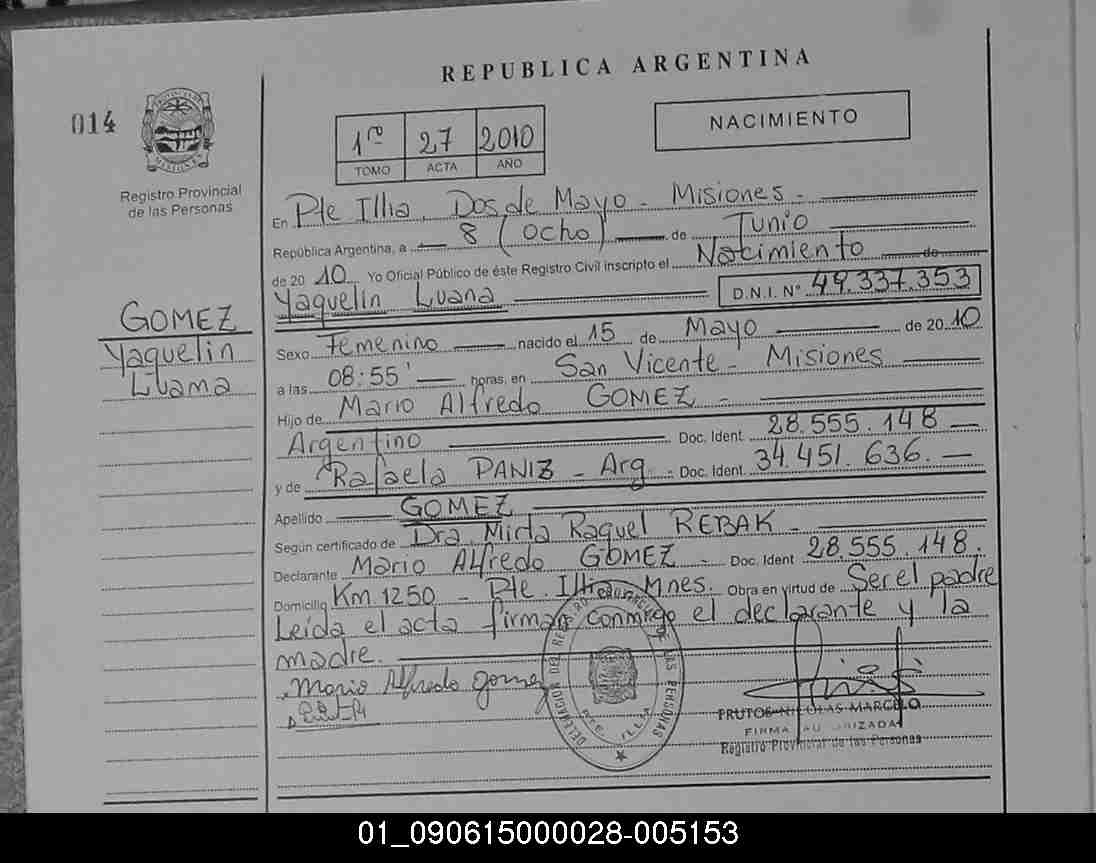 REPUBLICA ARGENTINA
014
PROVINCIA DE MISIONES
Registro Provincial
de las Personas
1ro 27 2010
TOMO ACTA AÑO
NACIMIENTO
GOMEZ
Yaquelin
Luana
En Pte Illia. Dos de Mayo - Misiones -
República Argentina, a 8 (Ocho) de Junio
de 2010 Yo Oficial Público de éste Registro Civil inscripto el Nacimiento de
Yaquelin Luana D.N.I. N° 49.337.353
Sexo Femenino nacido el 15 de Mayo de 2010
a las 08:55' horas, en San Vicente - Misiones
Hijo de Mario Alfredo GOMEZ -
Argentino Doc. Ident. 28.555.148 -
y de Rafaela PANIZ - Arg. - Doc. Ident. 34.451.636. -
Apellido GOMEZ
Según certificado de Dra. Mirta Raquel REBAK -
Declarante Mario Alfredo GOMEZ - Doc. Ident 28.555.148.
Domicilio Km. 1250 - Pte. Illia. Mnes. Obra en virtud de Ser el padre
Leída el acta firman conmigo el declarante y la
madre.
Mario Alfredo Gomez
DELEGACION DEL REGISTRO PROVINCIAL DE LAS PERSONAS
PTE. ILLIA
FRUTOS NICOLAS MARCELO
FIRMA AUTORIZADA
Registro Provincial de las Personas
01_090615000028-005153